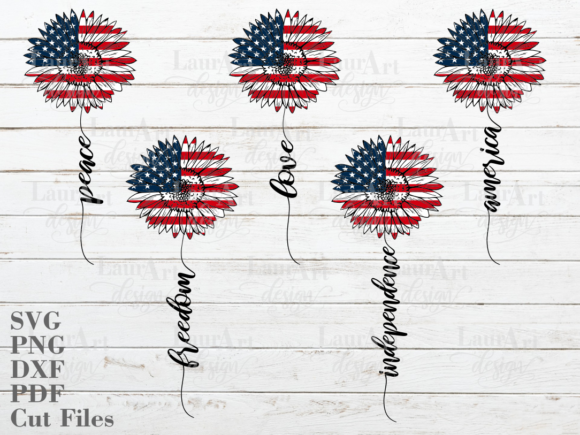 peace
love
america
freedom
independence
SVG
PNG
DXF
PDF
Cut Files
LaurArt
design